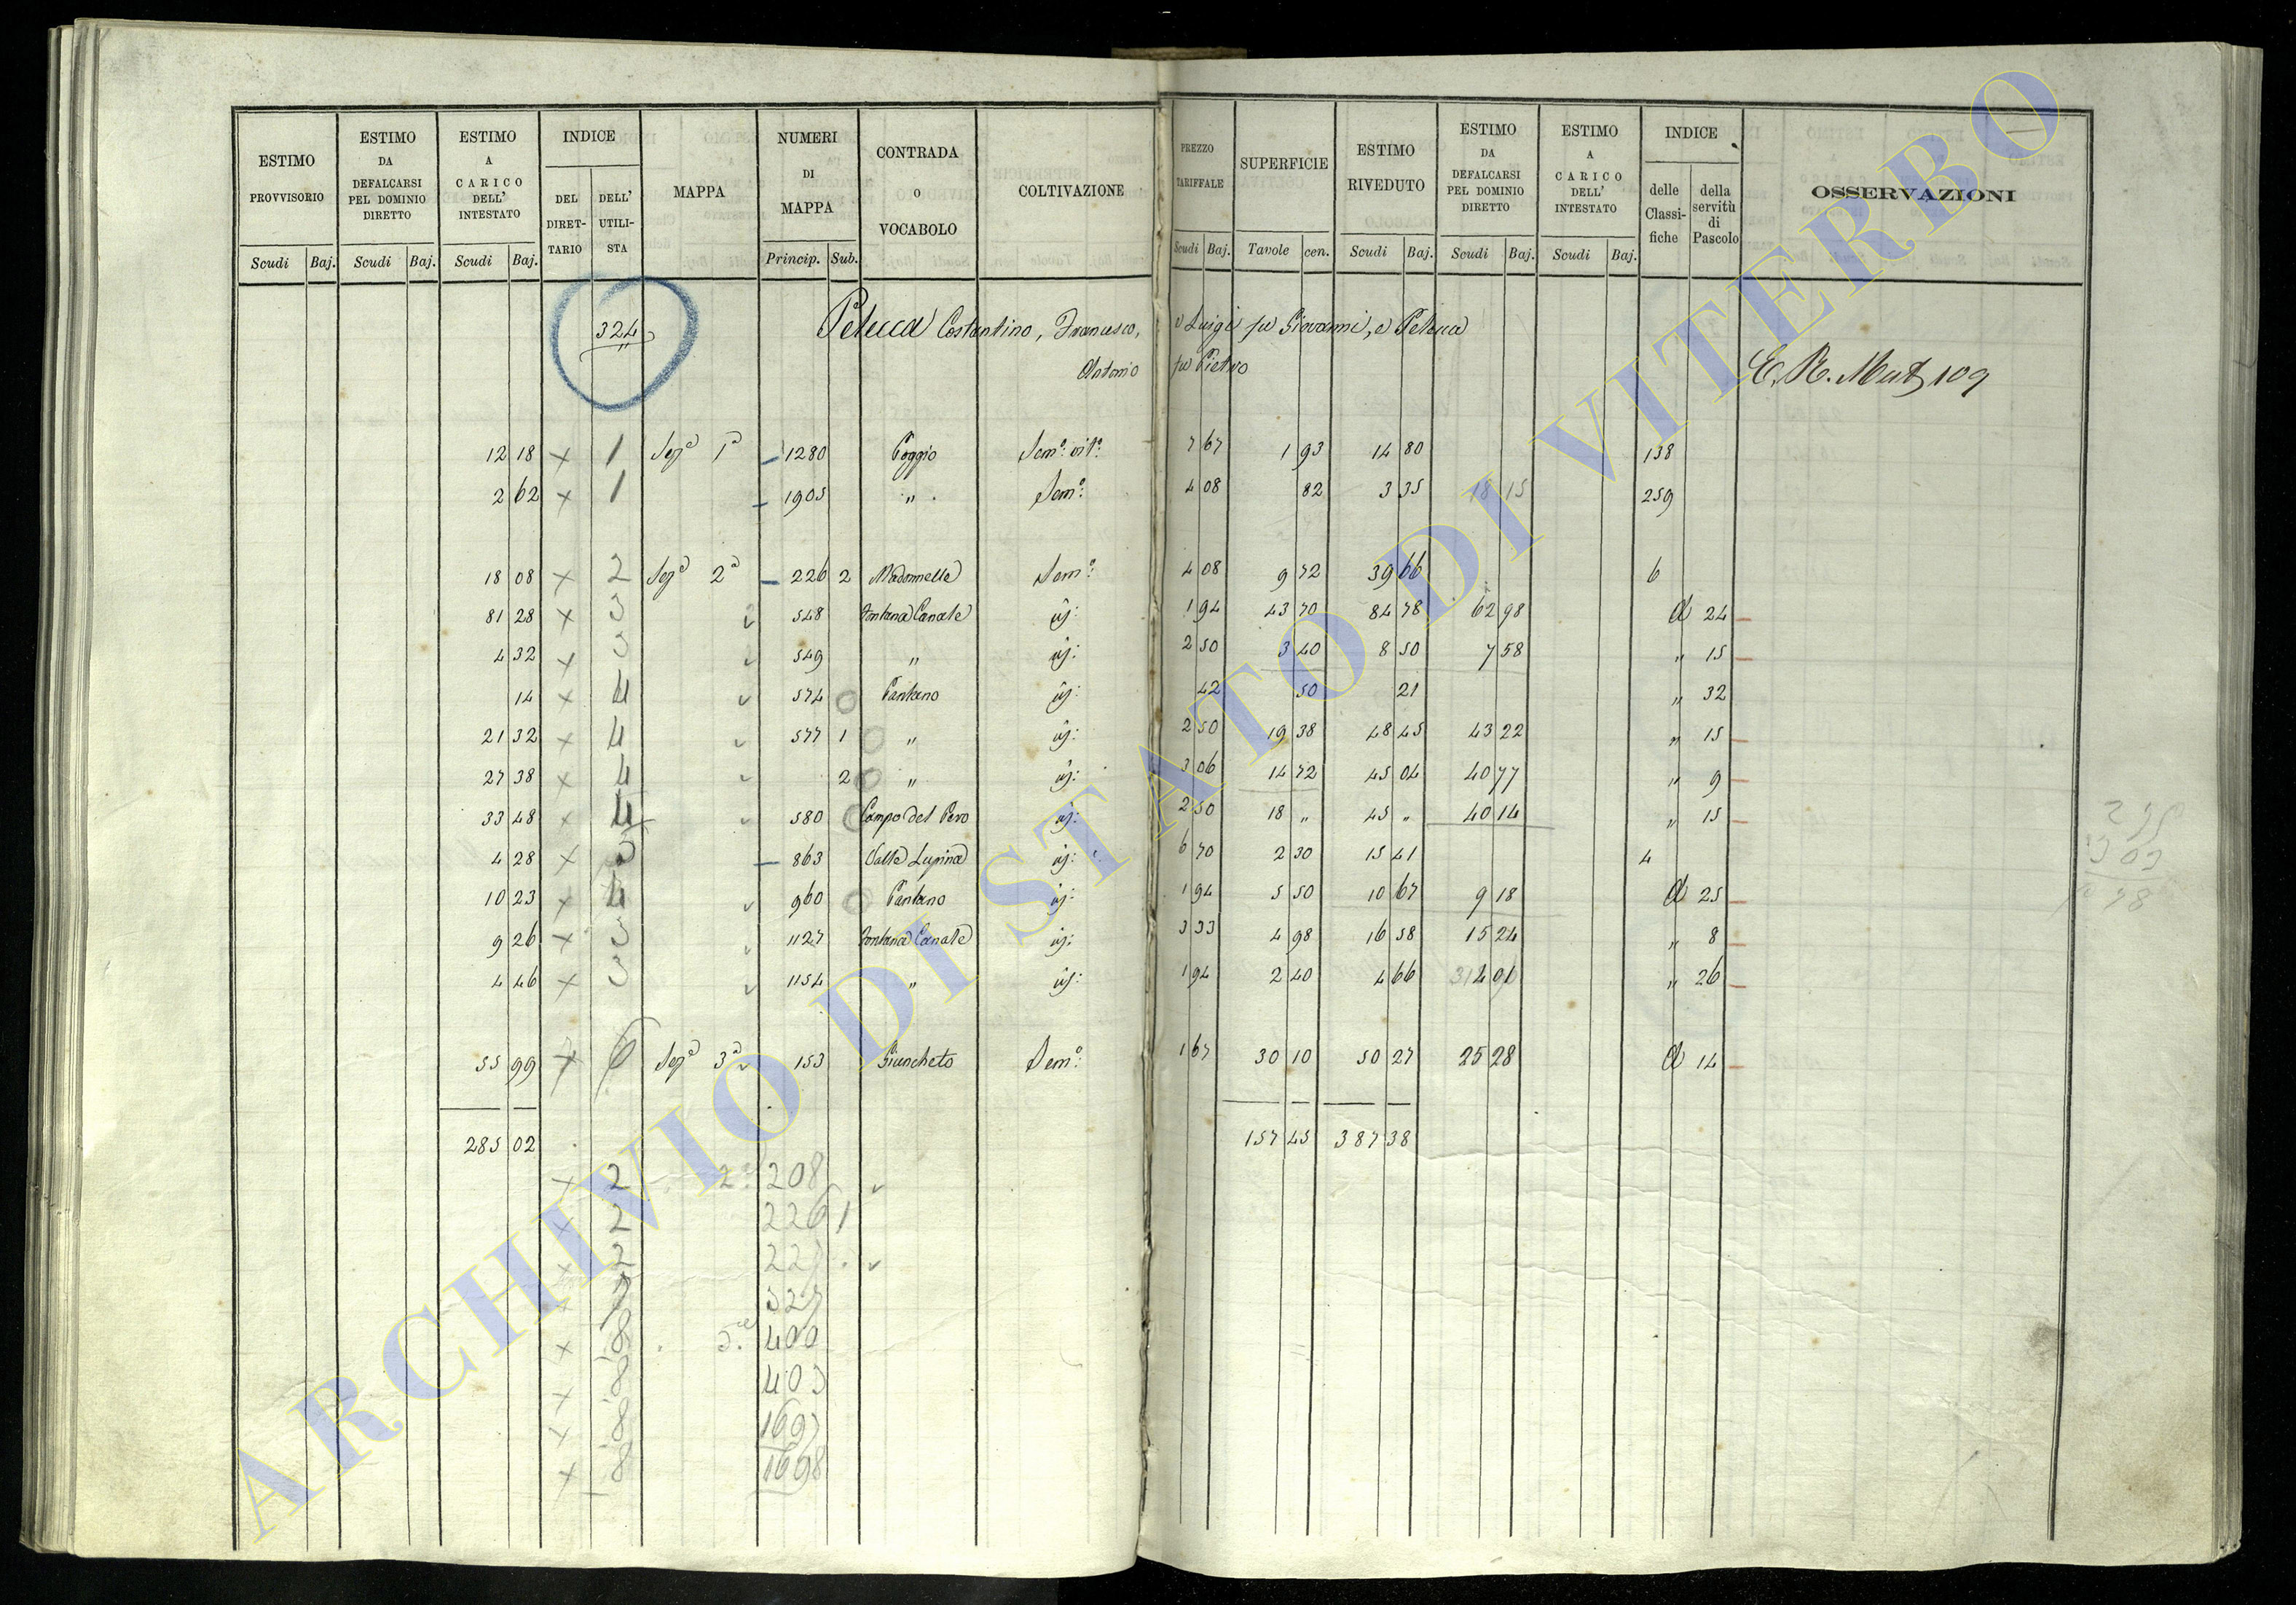 ESTIMO PROVVISORIO Scudi Baj. | ESTIMO DA DEFALCARSI PEL DOMINIO DIRETTO Scudi Baj. | ESTIMO A CARICO DELL' INTESTATO Scudi Baj. | INDICE DEL DIRET-TARIO DELL' UTILI-STA | MAPPA | NUMERI DI MAPPA Princip. Sub. | CONTRADA O VOCABOLO | COLTIVAZIONE | PREZZO TARIFFALE Scudi Baj. | SUPERFICIE Tavole cen. | ESTIMO RIVEDUTO Scudi Baj. | ESTIMO DA DEFALCARSI PEL DOMINIO DIRETTO Scudi Baj. | ESTIMO A CARICO DELL' INTESTATO Scudi Baj. | INDICE delle Classi-fiche della servitù di Pascolo | OSSERVAZIONI
324 Petecca Costantino, Francesco, e Luigi fu Giovanni, e Petecca
Antonio fu Pietro
E. R. Mut 109
12 18 x 1 Sez.e 1a 1280 Poggio Sem.o vit.o 7 67 1 93 14 80 138
2 62 x 1 1905 " Sem.o 4 08 82 3 35 18 15 259
18 08 x 2 Sez.e 2a 226 2 Madonnella Sem.o 4 08 9 72 39 66 6
81 28 x 3 548 Fontana Canale id: 1 94 43 70 84 78 62 98 A 24
4 32 x 3 549 " id: 2 50 3 40 8 50 7 58 " 15
14 x 4 574 Pantano id: 42 50 21 " 32
21 32 x 4 577 1 " id: 2 50 19 38 48 45 43 22 " 15
27 38 x 4 2 " id: 3 06 14 72 45 04 40 77 " 9
33 48 x 4 580 Campo del Pero id: 2 50 18 " 45 " 40 14 " 15
4 28 x 3 863 Valle Lupina id: 6 70 2 30 15 41 4
10 23 x 4 960 Pantano id: 1 94 5 50 10 67 9 18 A 25
9 26 x 3 1127 Fontana Canale id: 3 33 4 98 16 58 15 24 " 8
4 46 x 3 1154 " id: 1 94 2 40 4 66 " 26
55 99 x 6 Sez.e 3a 153 Giuncheto Sem.o 1 67 30 10 50 27 25 28 A 14
285 02 157 45 387 38
x 2 2a 208
x 2 226 1
x 2 227
x 327
x 8 3a 400
x 8 403
x 8 1697
x 8 1698
ARCHIVIO DI STATO DI VITERBO